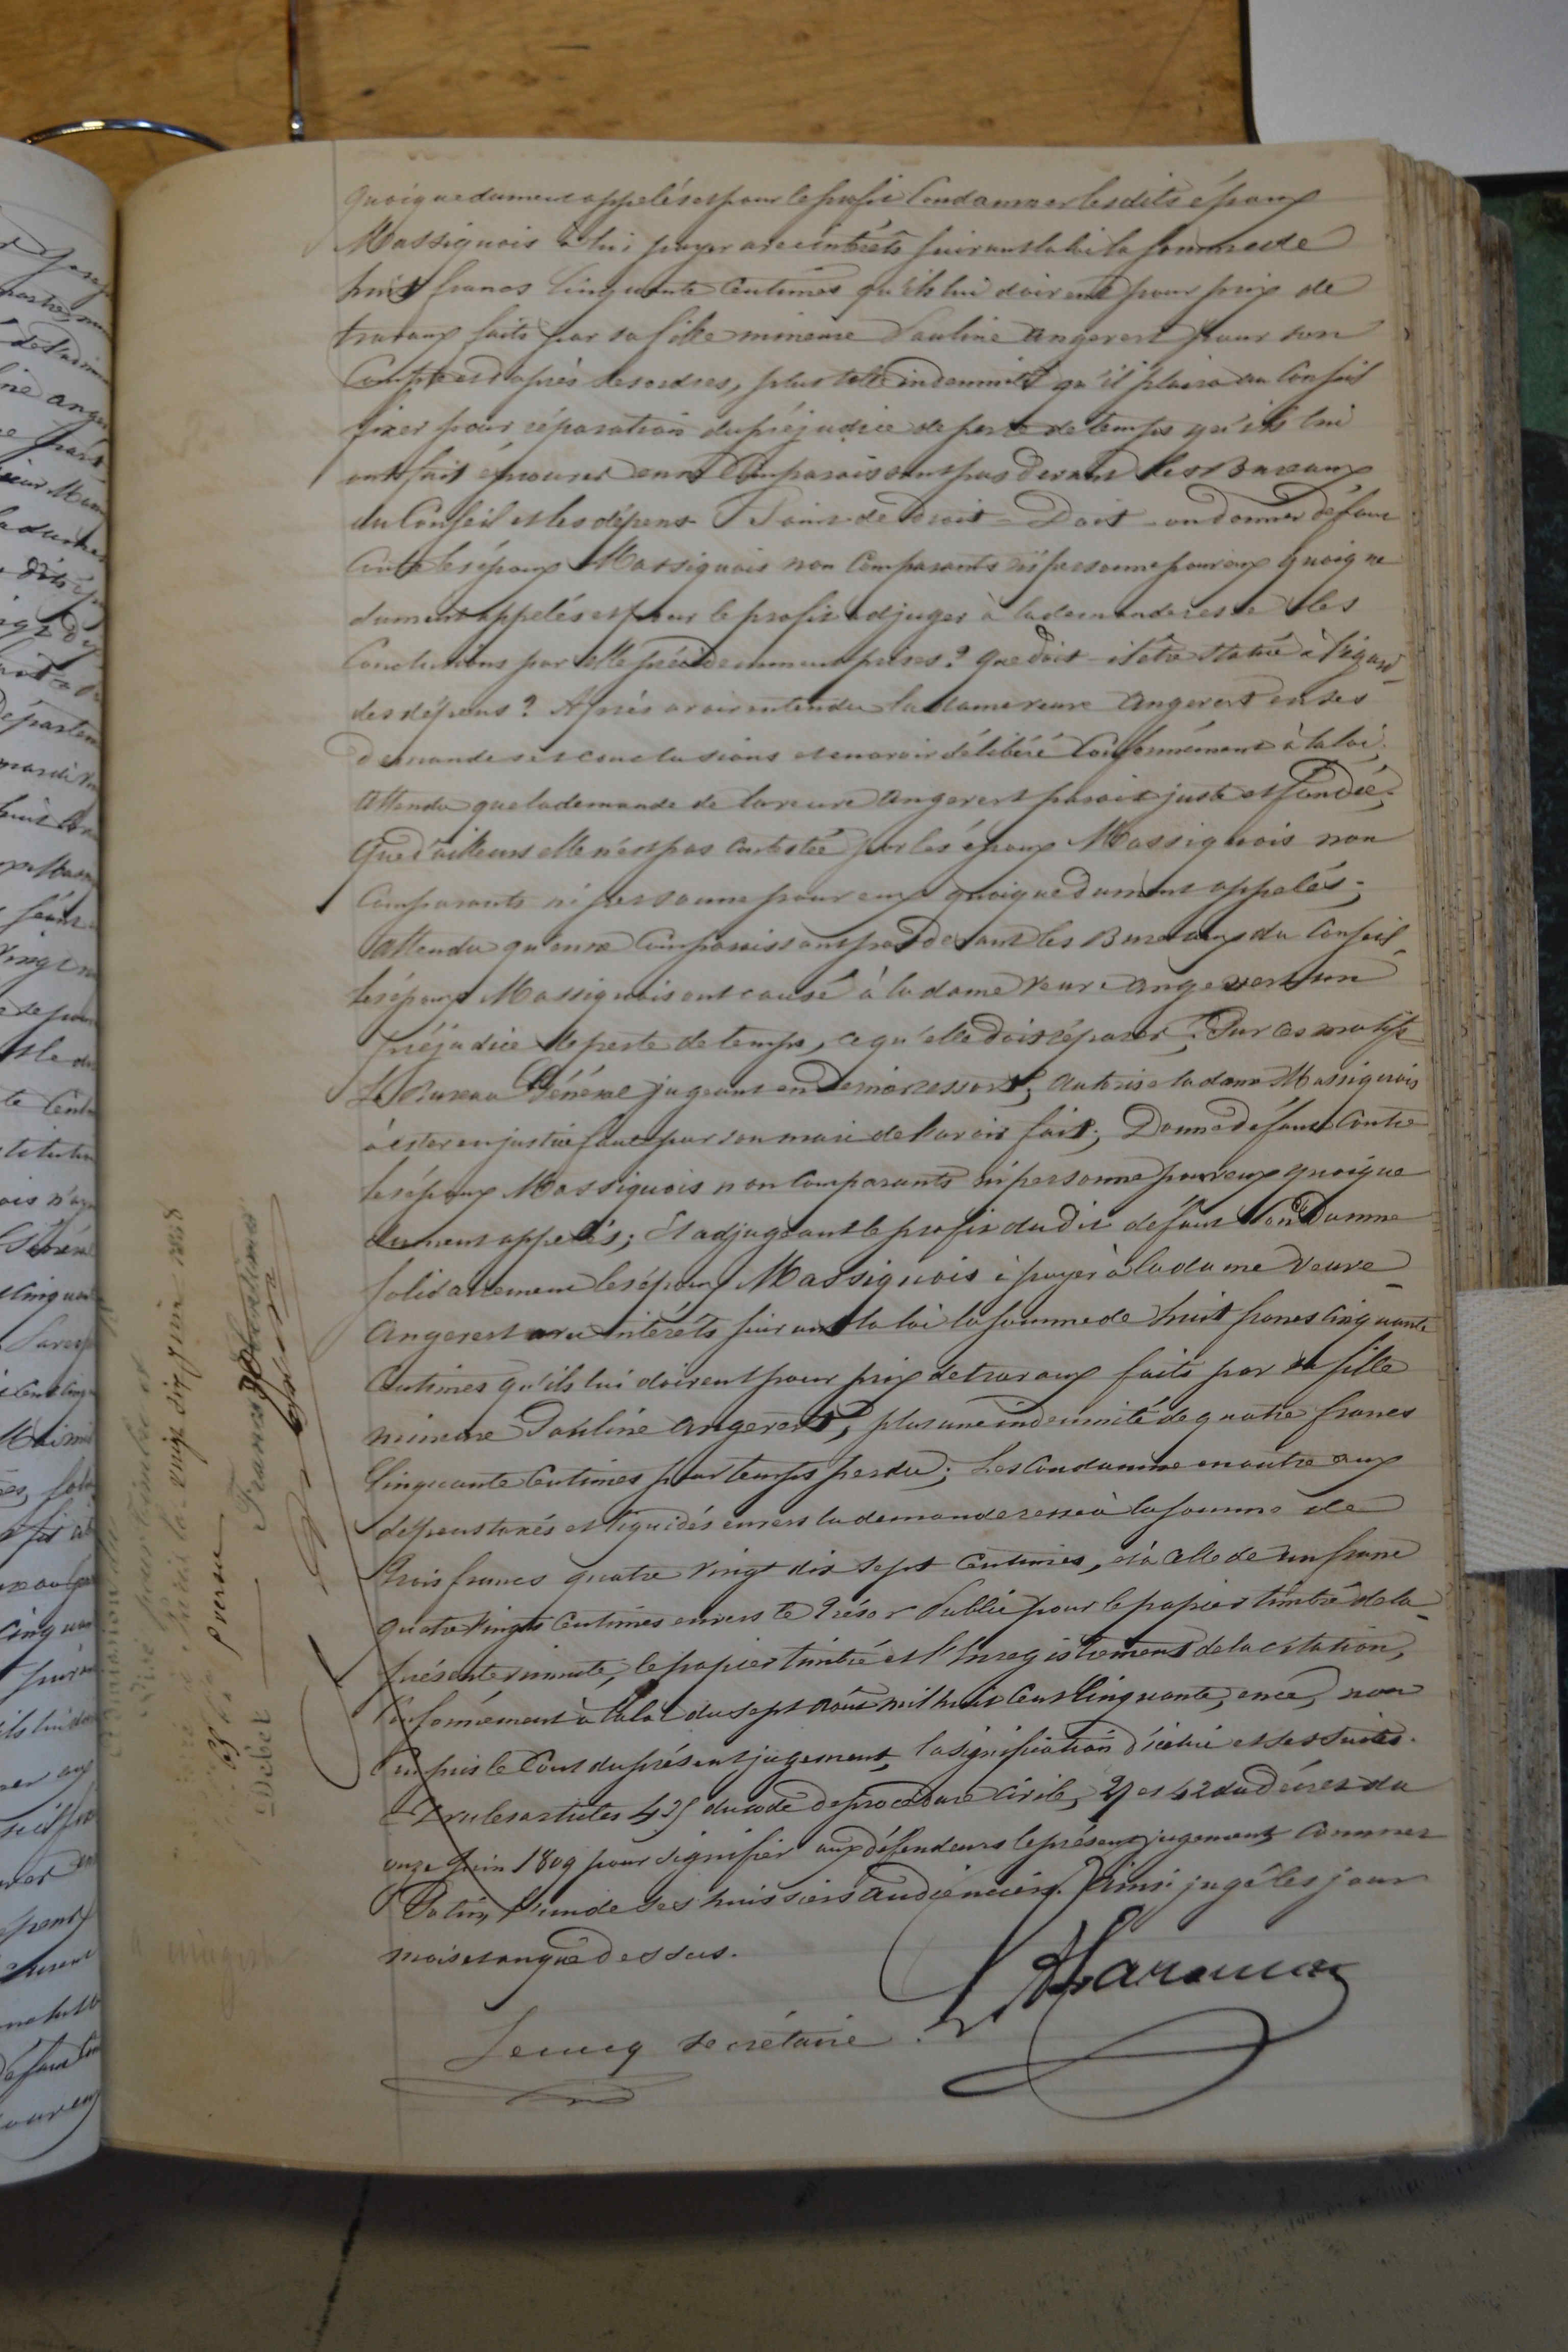 quoique dument appelés et pour le profit Condamner lesdits époux
Massiquois à lui payer avec intérêts suivant la loi la somme de
huit francs Cinquante Centimes qu'ils lui doivent pour prix de
travaux faits par sa fille mineure Pauline Angerert pour son
Compte et d'après ses ordres, plus telle indemnité qu'il plaira au Conseil
fixer pour réparation du préjudice de perte de temps qu'ils lui
ont fait éprouver en ne Comparaissant pas devant les Bureaux
du Conseil et les dépens. Point de droit – Doit-on donner défaut
Contre les époux Massiquois non Comparants ni personne pour eux quoique
dument appelés et pour le profit adjuger à la demanderesse les
Conclusions par elle précédemment prises? Que doit-il être statué à l'égard
des dépens? Après avoir entendu la dame veuve Angerert en ses
demandes et conclusions et en avoir délibéré Conformément à la loi;
Attendu que la demande de la veuve Angerert parait juste et fondée;
Que d'ailleurs elle n'est pas Contestée par les époux Massiquois non
Comparants ni personne pour eux quoique dument appelés;
Attendu qu'en ne Comparaissant pas devant les Bureaux du Conseil
les époux Massiquois ont causé à la dame veuve Angerert un
préjudice de perte de temps, ce qu'elle doit réparer; Par ces motifs
Le Bureau Général jugeant en dernier ressort; Autorise la dame Massiquois
à ester en justice faute par son mari de l'avoir fait; Donne défaut Contre
les époux Massiquois non Comparants ni personne pour eux quoique
dument appelés; Et adjugeant le profit dudit défaut Condamne
solidairement les époux Massiquois à payer à la dame Veuve
Angerert avec intérêts suivant la loi la somme de huit francs Cinquante
Centimes qu'ils lui doivent pour prix de travaux faits par sa fille
mineure Pauline Angerert, plus une indemnité de quatre francs
Cinquante Centimes pour temps perdu; Les Condamne en outre aux
dépens taxés et liquidés envers la demanderesse à la somme de
trois francs quatre vingt dix sept Centimes, et à celle de un franc
quatre vingts Centimes envers le Trésor Public pour le papier timbré de la
présente minute, le papier timbré et l'Enregistrement de la citation,
Conformément à la loi du sept Août mil huit Cent Cinquante, ence, non
Compris le Cout du présent jugement, la signification d'icelui et ses suites.
Et vu les articles 435 du code de procédure civile, 27 et 42 du décret du
onze Juin 1809 pour signifier aux défendeurs le présent jugement Commet
l'un de ses huissiers audienciers. Ainsi jugé les jour
mois et an que dessus.
Lecucq secrétaire
Débet
Francs
Centimes